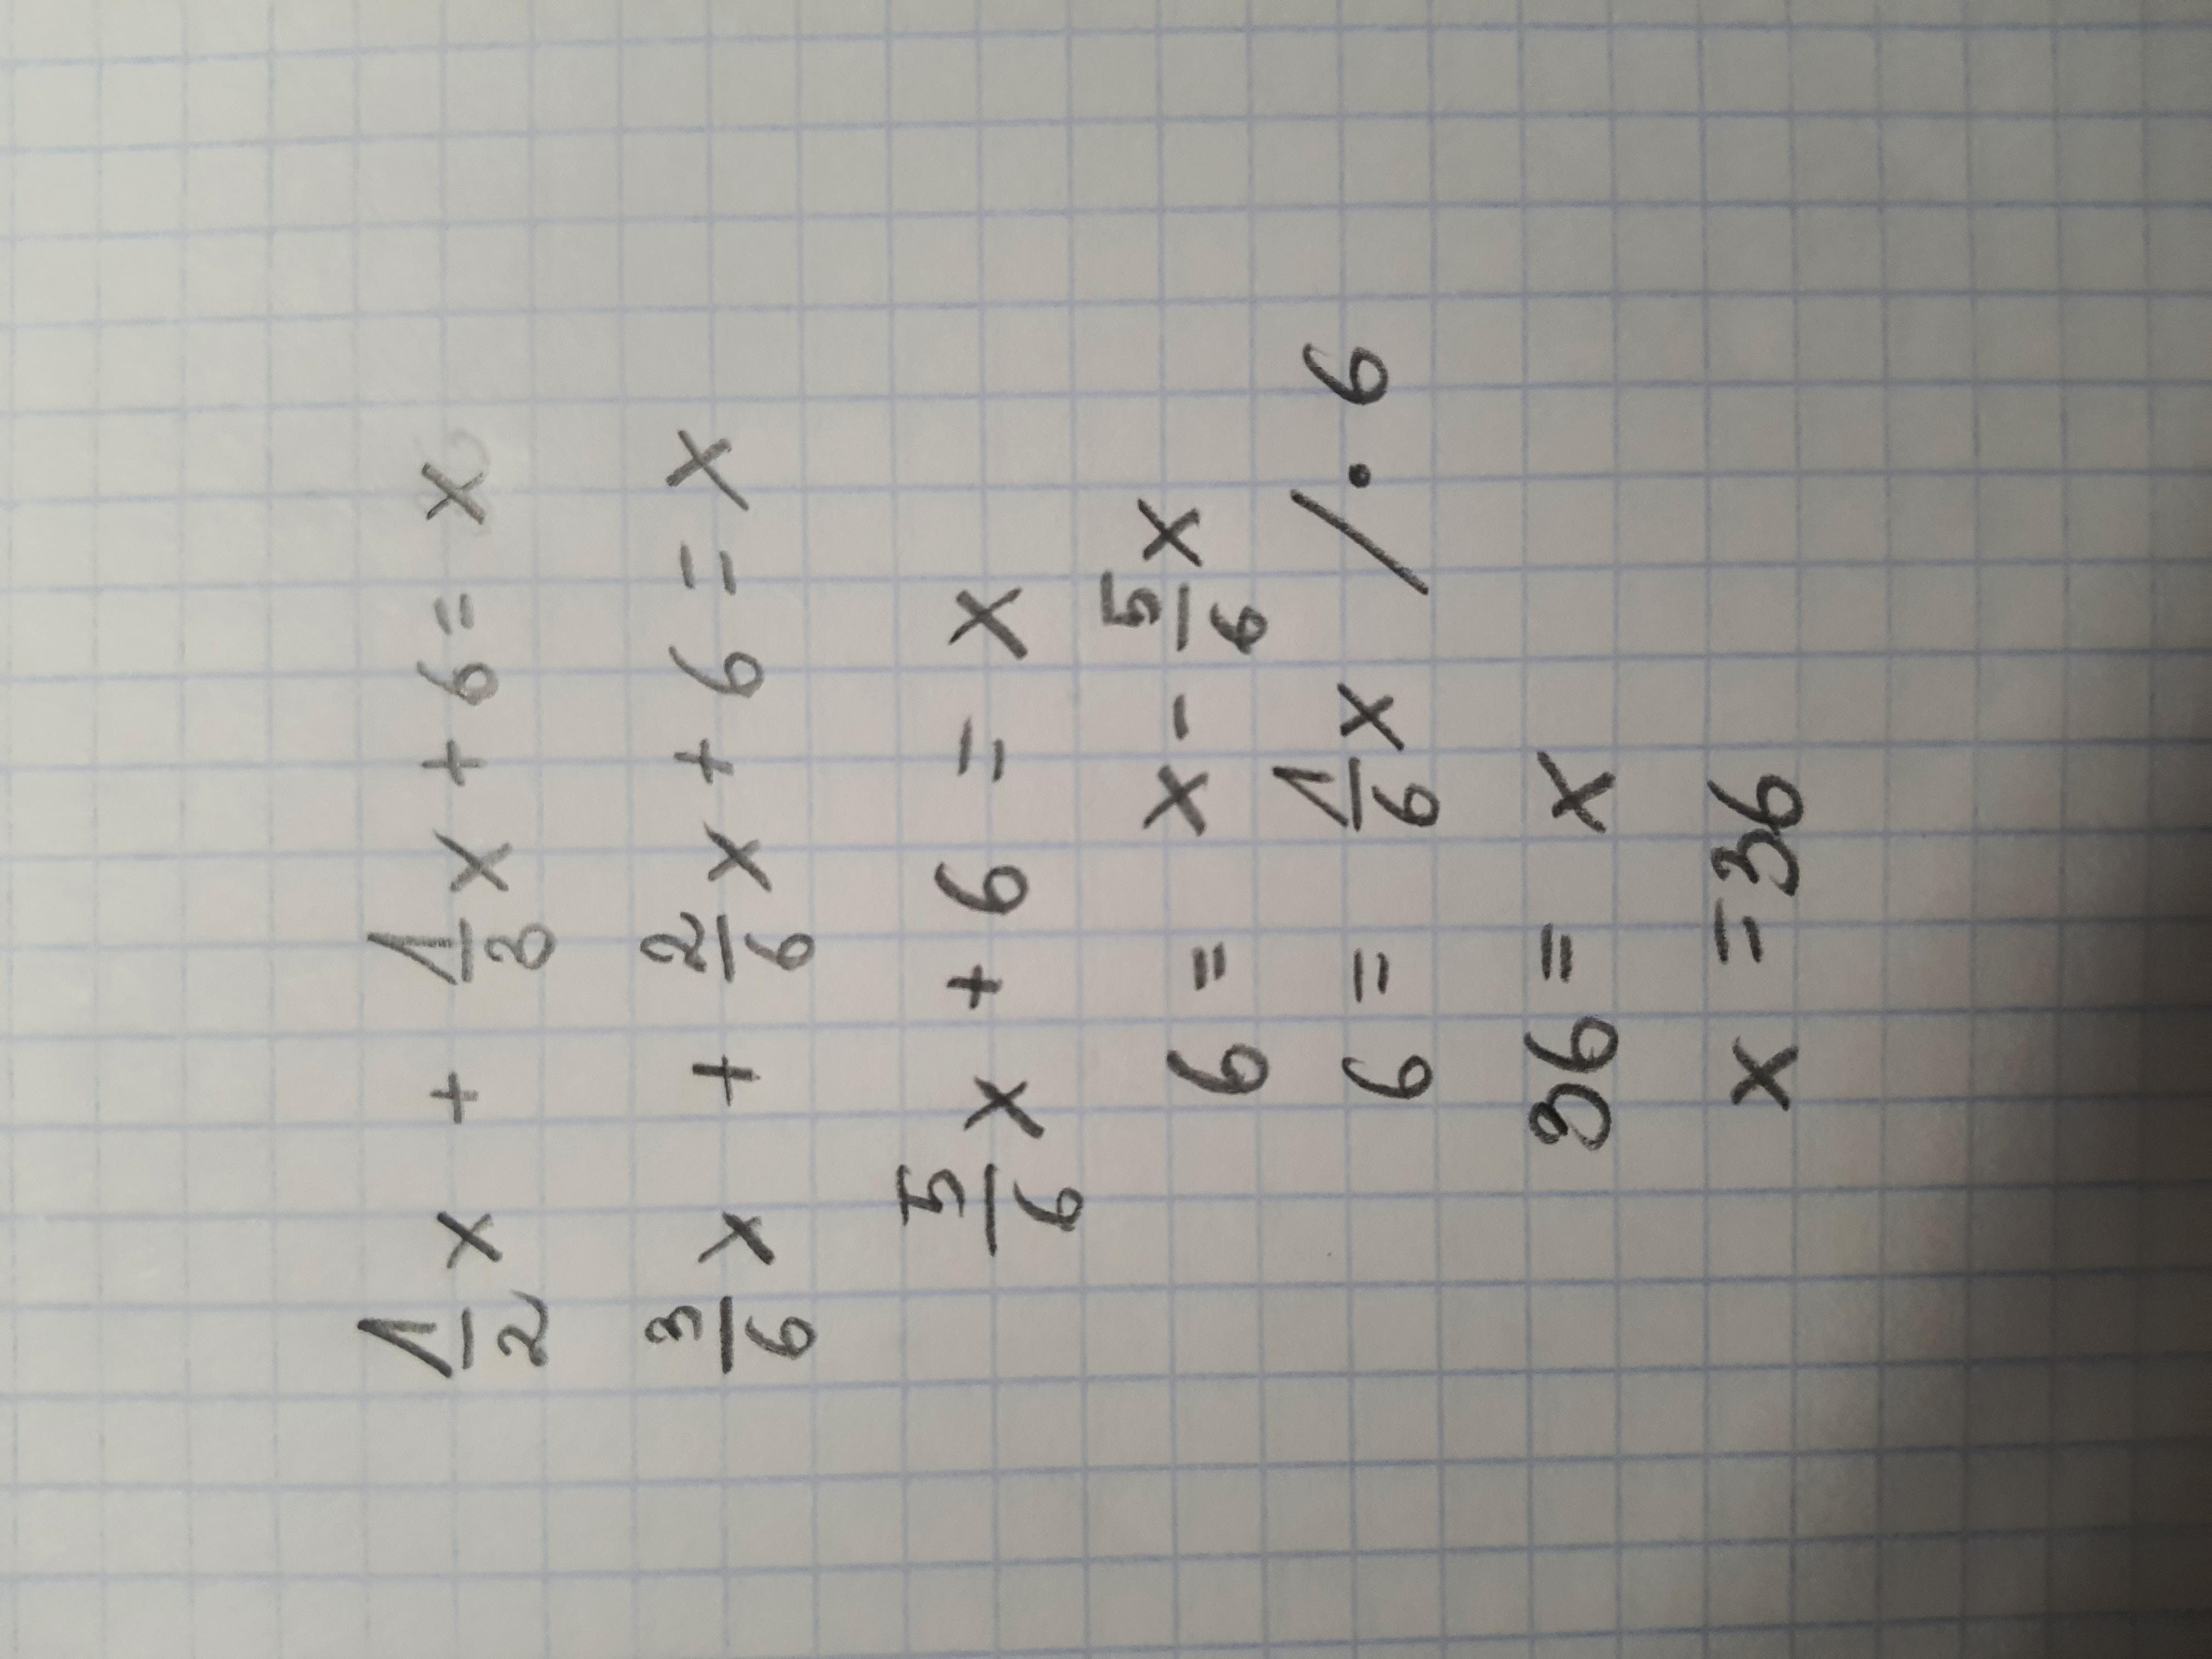 1/2 x + 1/3 x + 6 = x
3/6 x + 2/6 x + 6 = x
5/6 x + 6 = x
6 = x - 5/6 x
6 = 1/6 x / · 6
36 = x
x = 36